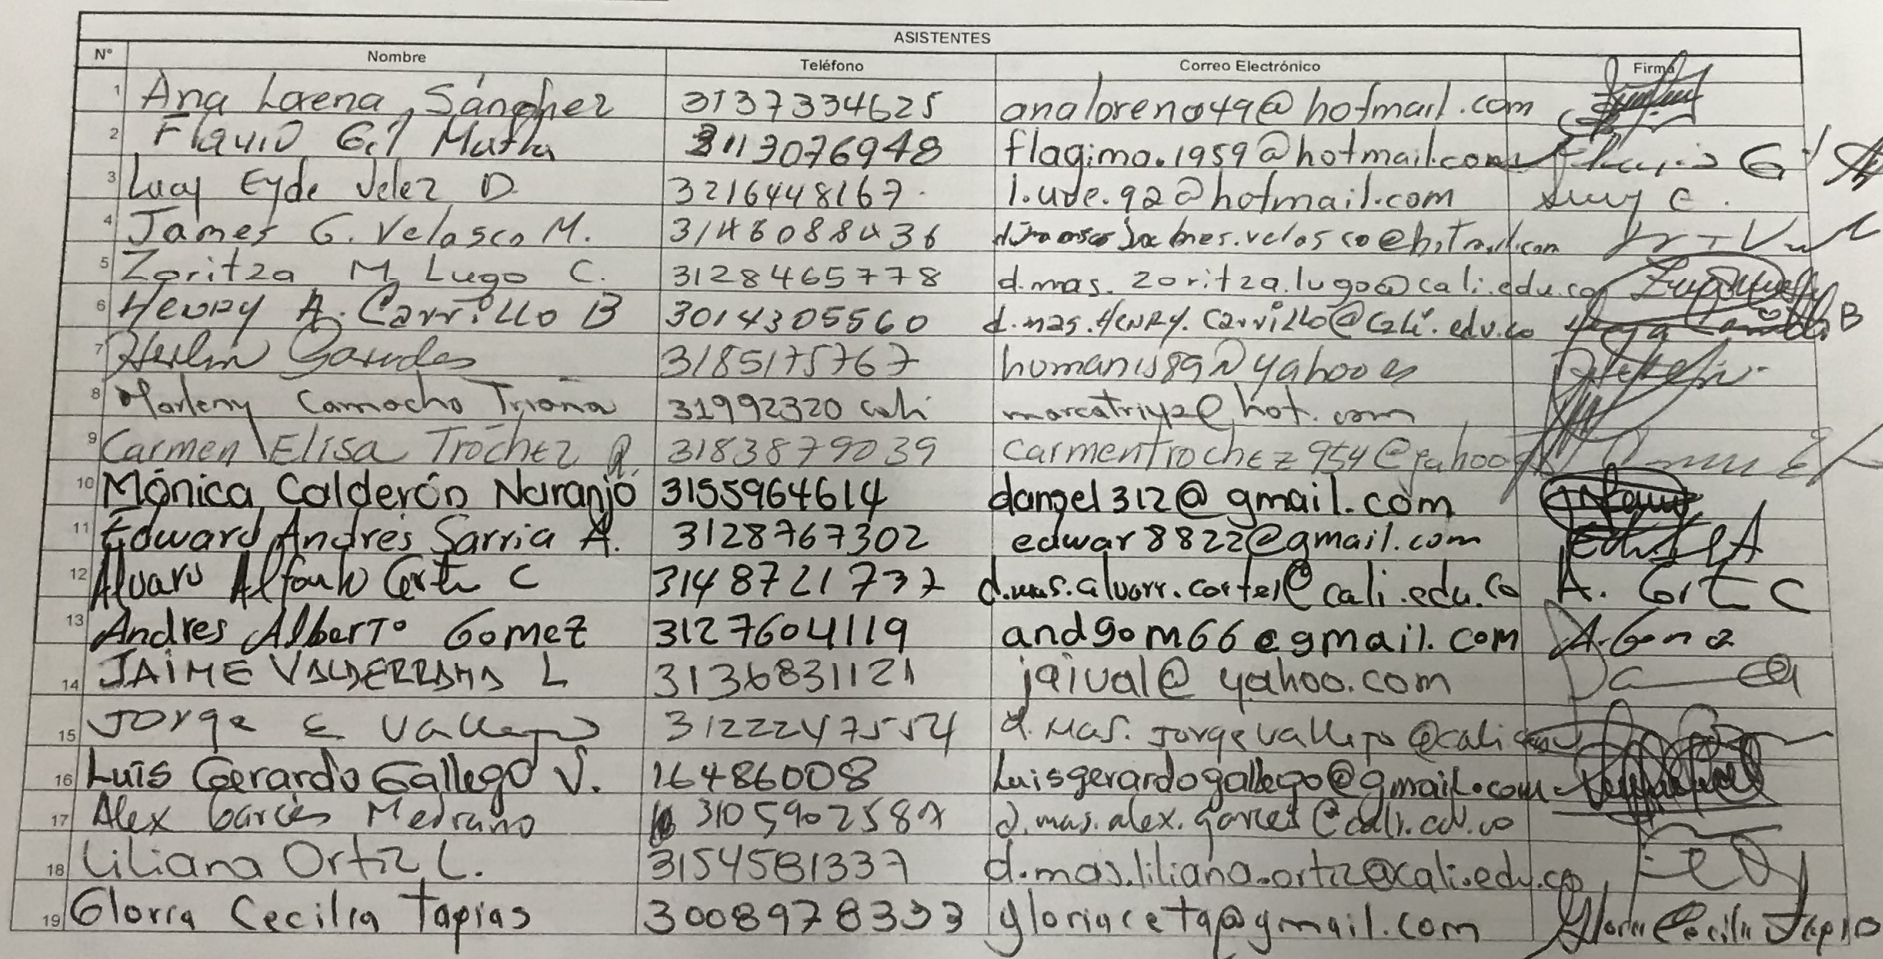 ASISTENTES
N° Nombre Teléfono Correo Electrónico Firma
1 Ana Lorena Sánchez 3137334625 analorena49@hotmail.com
2 Flavio Gil Mafla 3113076948 flagimo.1959@hotmail.com
3 Lucy Eyde Velez D. 3216448167 l.uve.92@hotmail.com Lucy E.
4 James G. Velasco M. 3146088436
5 Zoritza M. Lugo C. 3128465778 d.mas.zoritza.lugo@cali.edu.co
6 Henry A. Carrillo B 3014305560 d.mas.HENRY.Carrillo@cali.edu.co
7 3185175767 humanis89@yahoo es
8 Marleny Camacho Triana 31992320 cali marcatriy2@hot.com
9 Carmen Elisa Tróchez R. 3183879039 carmentrochez954@yahoo
10 Mónica Calderón Naranjo 3155964614 dangel312@gmail.com
11 Edward Andrés Sarria A. 3128767302 edwar8822@gmail.com
12 Alvaro Alfonso C 3148721737 A. C
13 Andres Alberto Gomez 3127604119 andgom66@gmail.com
14 JAIME VALDERRAMA L 3136831121 jaival@yahoo.com
15 Jorge E Vallejo 3122247554 d.mas.jorgevallejo@cali
16 Luis Gerardo Gallego V. 16486008 Luisgerardogallego@gmail.com
17 Alex Garcés Medrano d.mas.alex.garces@cali.edu.co
18 Liliana Ortiz L. 3154581337 d.mas.liliana.ortiz@cali.edu.co
19 Gloria Cecilia Tapias 3008978333 gloriaceta@gmail.com Gloria Cecilia Tapias